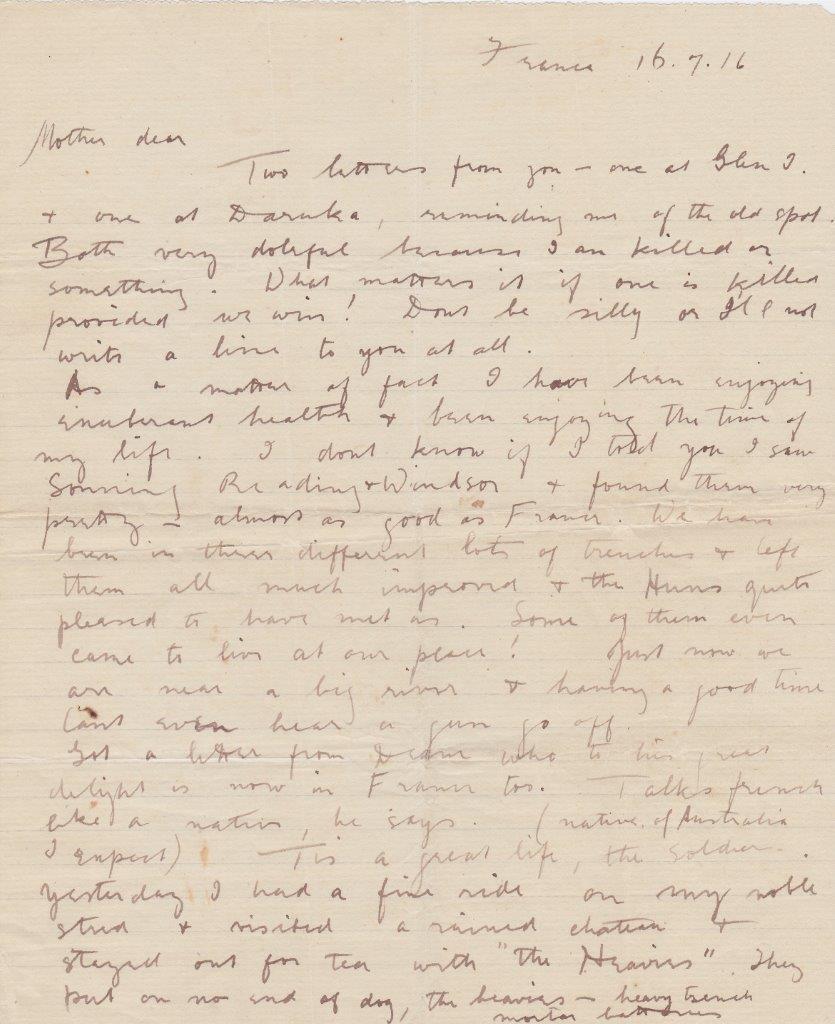 France 16.7.16
Mother dear
Two letters from you - one at Glen I.
+ one at Daruka, reminding me of the old spot.
Both very doleful because I am killed or
something. What matters it if one is killed
provided we win! Dont be silly or I'll not
write a line to you at all.
As a matter of fact I have been enjoying
exuberant health + been enjoying the time of
my life. I dont know if I told you I saw
Sonning Reading + Windsor + found them very
pretty - almost as good as France. We have
been in three different lots of trenches + left
them all much improved + the Huns quite
pleased to have met us. Some of them even
came to live at our place! Just now we
are near a big river + having a good time
Cant even hear a gun go off.
Got a letter from who to his great
delight is now in France too. Talks french
like a native, he says. (native of Australia
I expect) Tis a great life, the soldier.
Yesterday I had a fine ride on my noble
steed + visited a ruined chateau +
stayed out for tea with "the Heavies". They
put on no end of dog, the heavies - heavy trench
mortar batteries